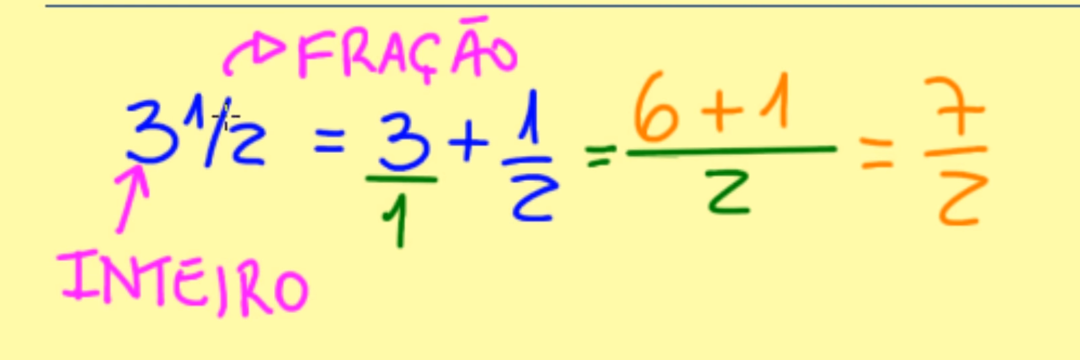 FRAÇÃO
3 1/2 = 3/1 + 1/2 = 6+1/2 = 7/2
INTEIRO